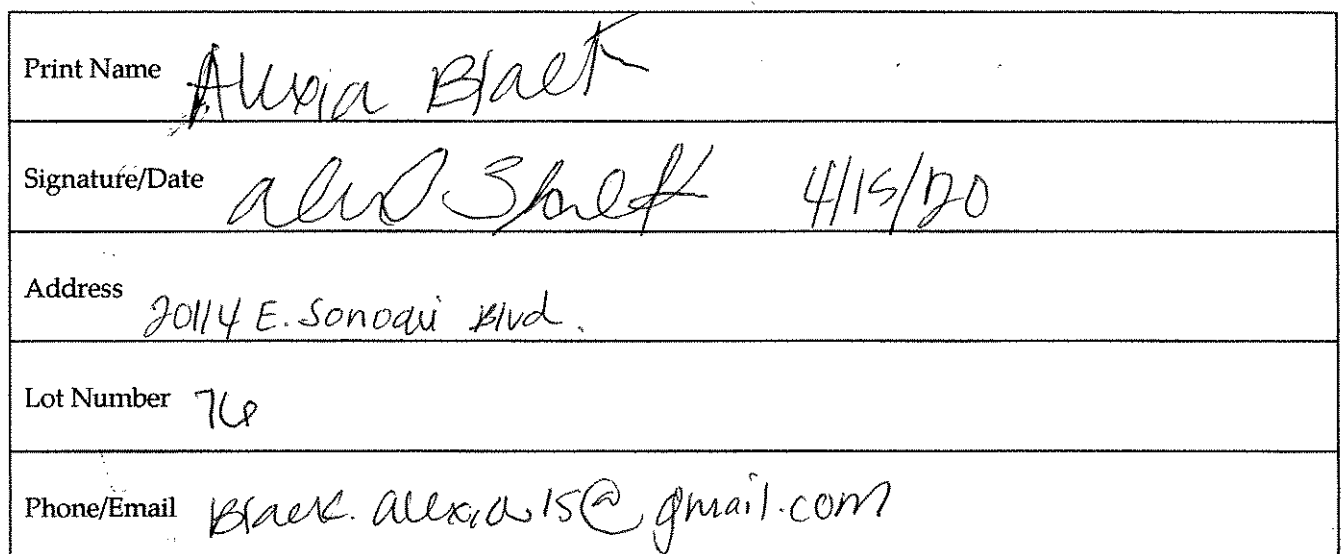 Print Name Alexia Black
Signature/Date 4/15/20
Address 20114 E. Sonoqui Blvd.
Lot Number 76
Phone/Email Black.alexia15@gmail.com